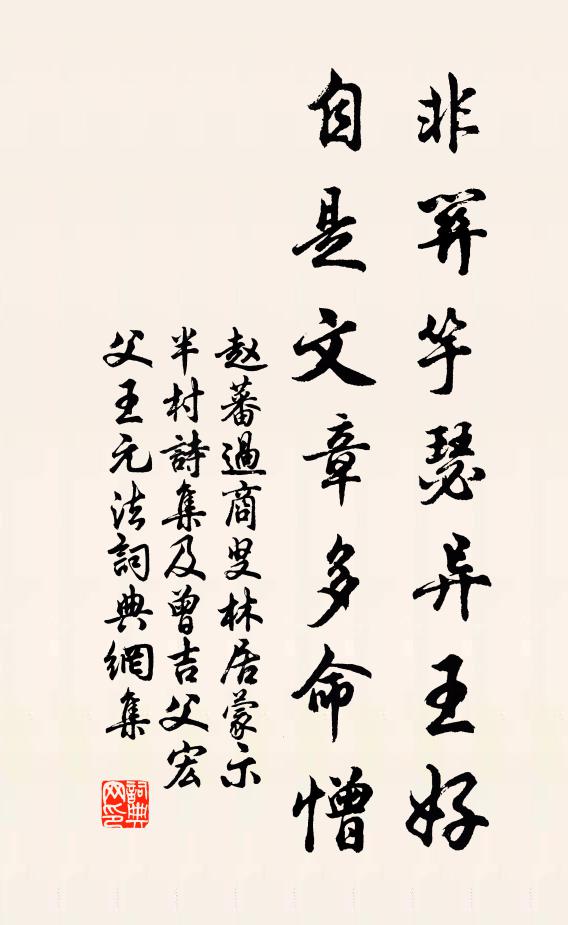 非關竽瑟异王好
自是文章多命憎
赵蕃過商叟林居蒙示
半村詩集及曾吉父宏
父王元法詞典網集
詞典
网印